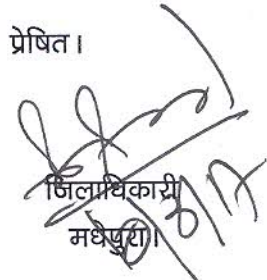 प्रेषित।
जिलाधिकारी
मधेपुरा।